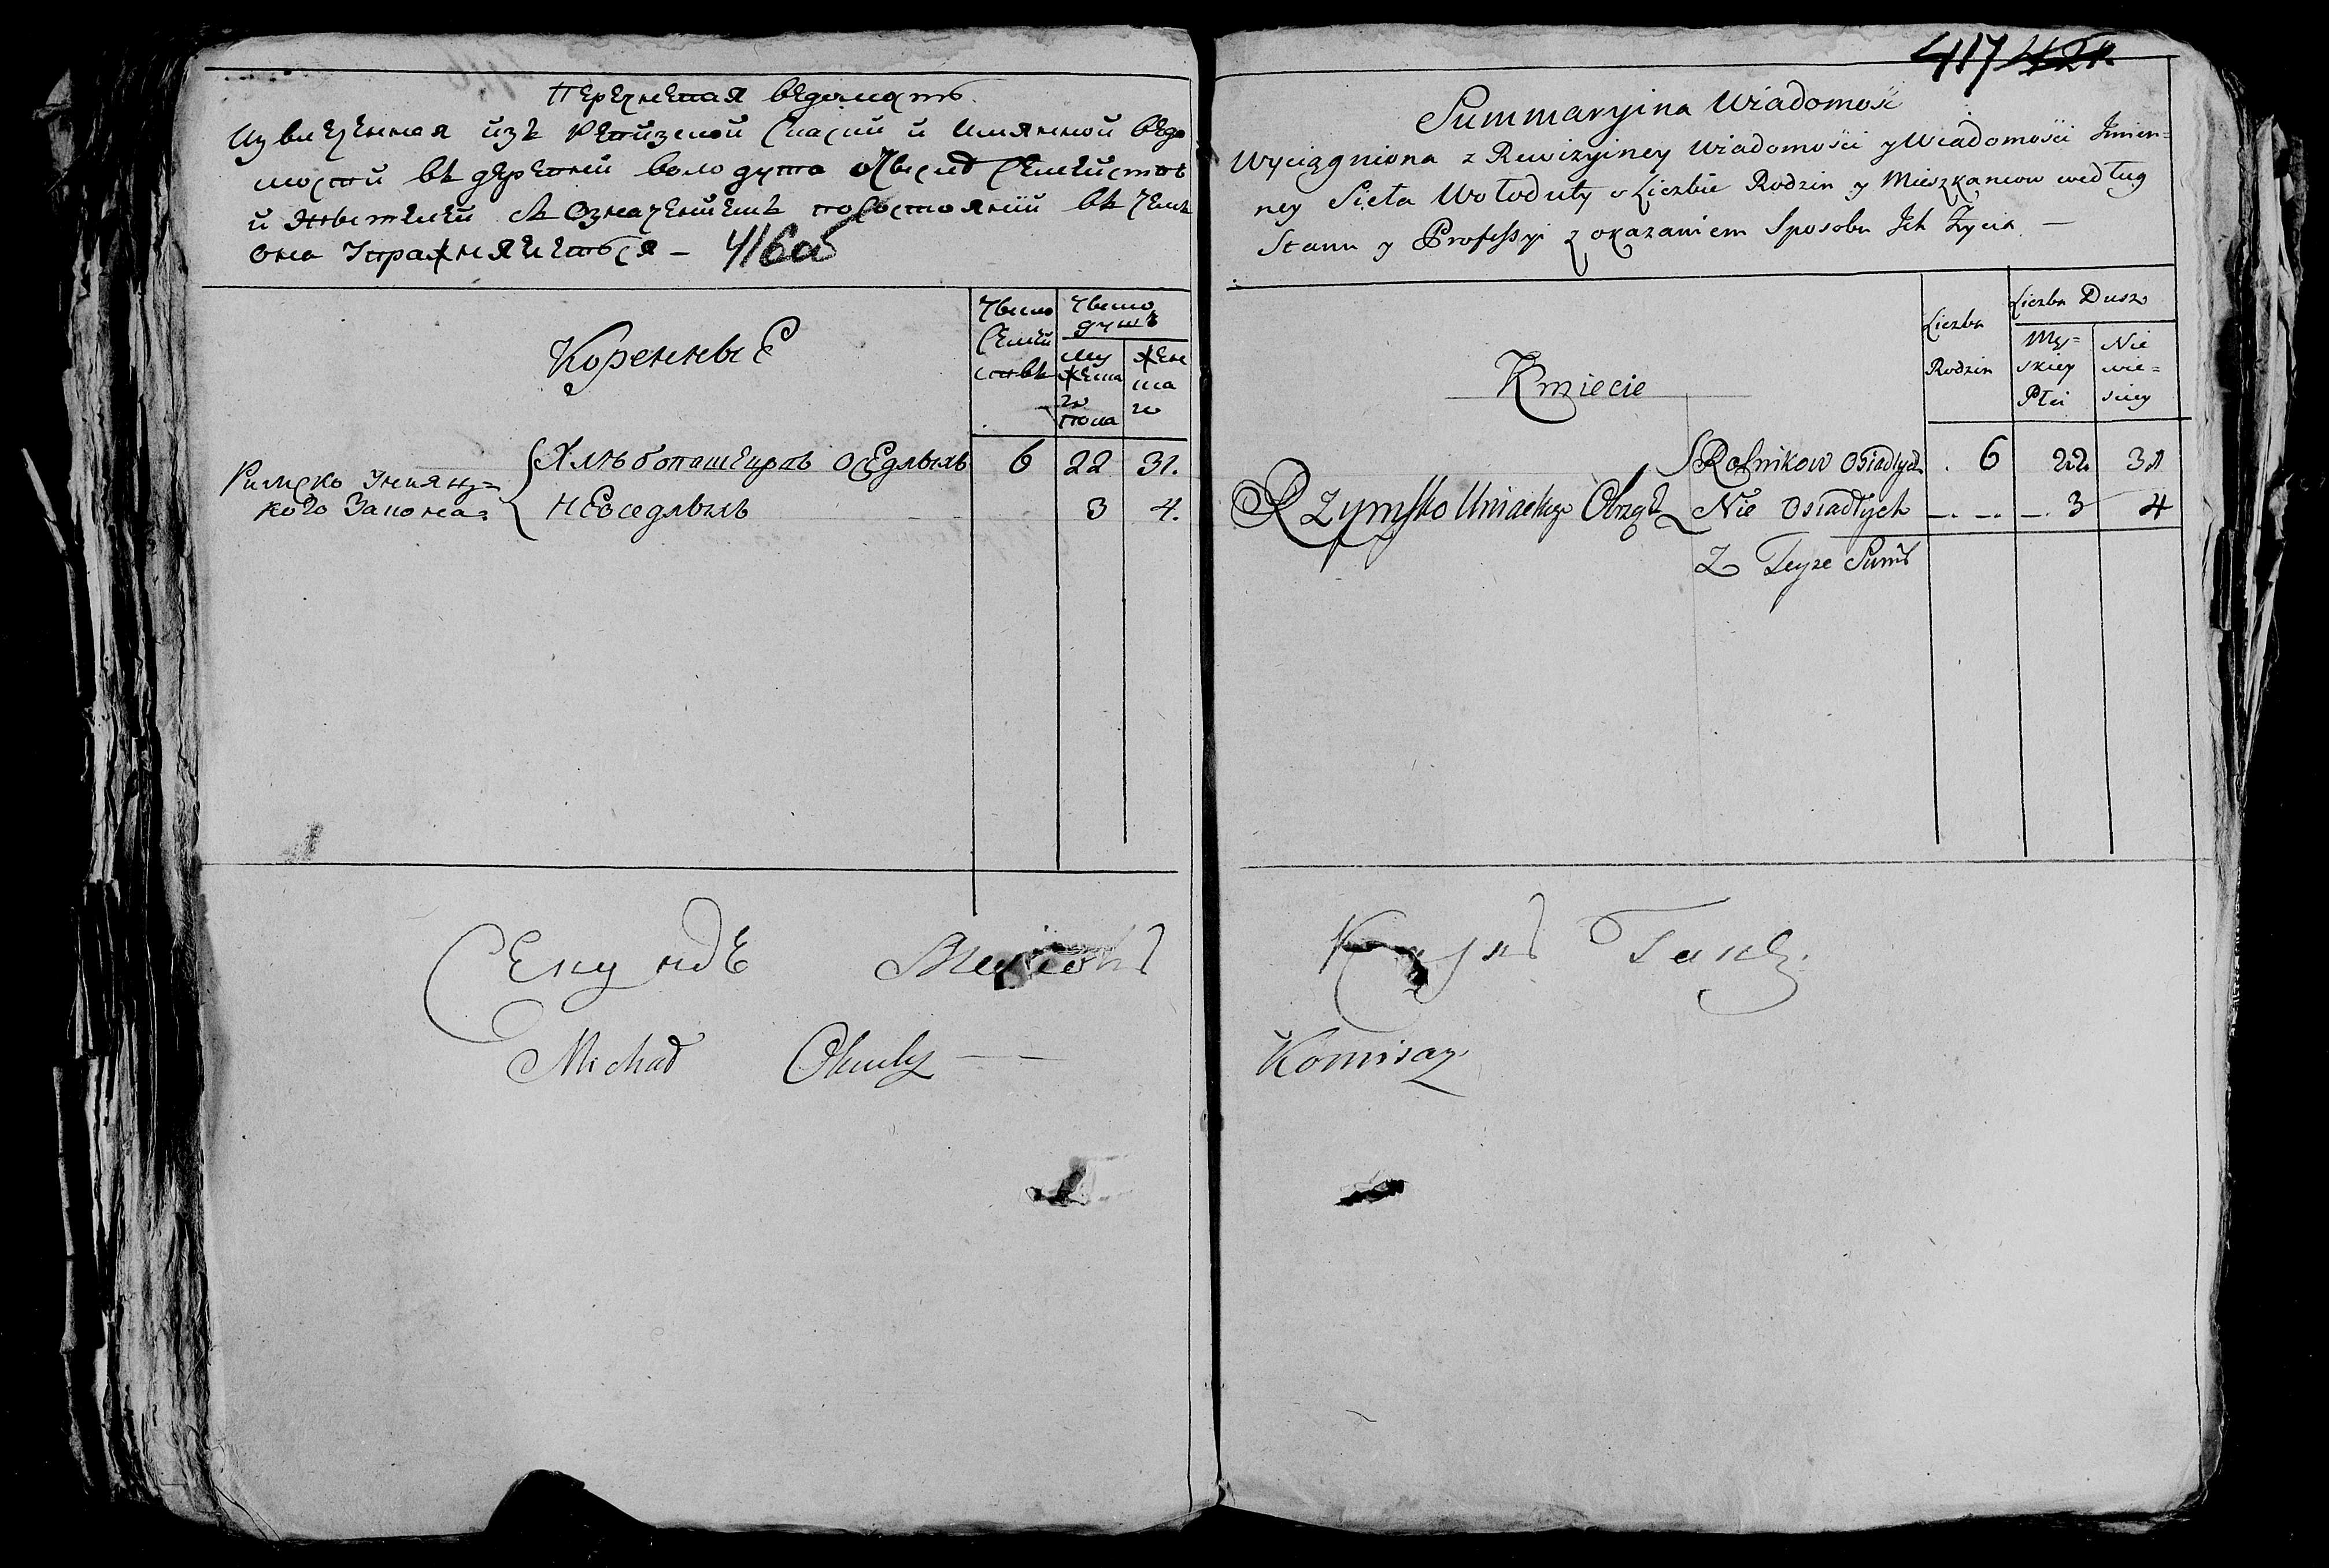 Перечневая ведомость
Извлеченная изъ Ревизской Скаски и Имянной ведо
мости въ деревни Володута о числе Семействъ
и жителей съ Означениемъ по состоянии въ чемъ
она Упражняется – 416об
Коренные
Число Семей ствъ
Число душъ
му жеска го пола
жен ска го
Римско Униянс=
кого Закона=
Хлебопашцовъ оседлыхъ 6 22 31.
неоседлыхъ 3 4.
Секундъ Маіоръ
Michał
417
Summaryina Wiadomość
Wyciągniona z Rewizyiney Wiadomości y Wiadomości Jmien=
ney Sieła Wołoduty o Liczbie Rodzin y Mieszkancow według
Stanu y Professyi z okazaniem Sposobu Jch Życia. —
Kmiecie
Liczba Rodzin
Liczba Dusz
Męs= skiey Płci
Nie wie= sciey
Rzymsko Uniackego Obrządk
Rolnikow Osiadłych 6 22 31
Nie Osiadłych 3 4
Z Teyze Summ
Komisarz